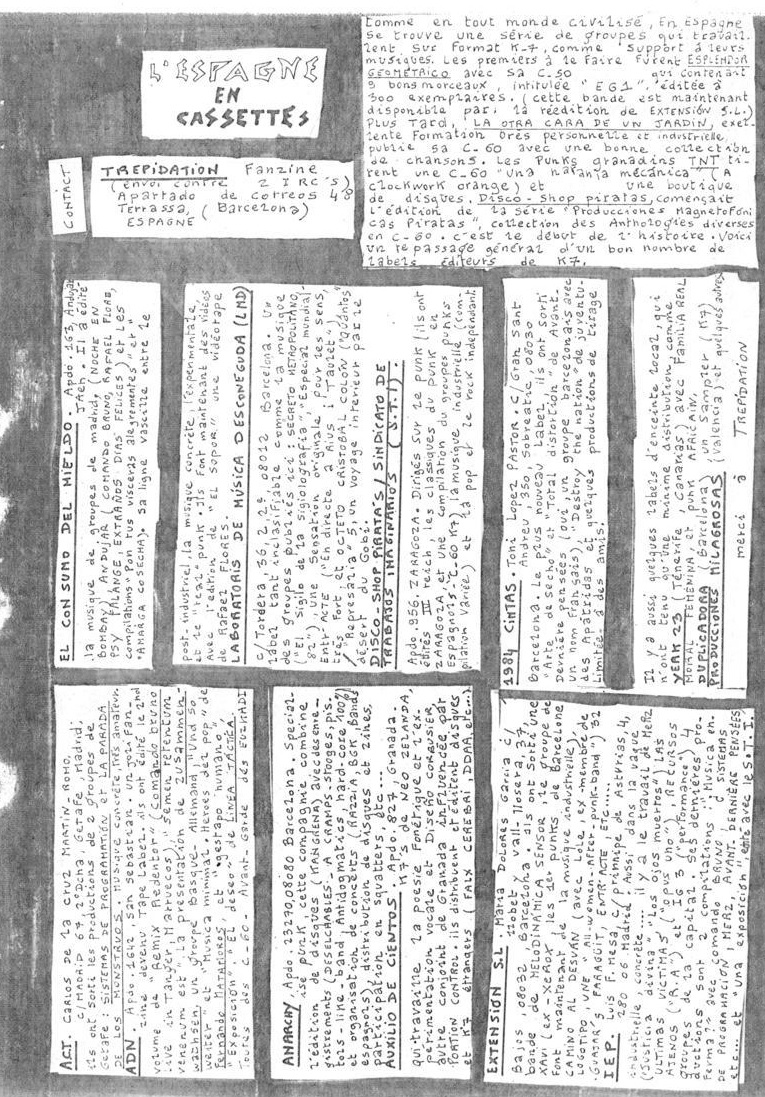 L'ESPAGNE
EN
CASSETTES
Comme en tout monde civilisé, En Espagne
se trouve une série de groupes qui travail-
lent sur format K-7, comme support à leurs
musiques. Les premiers à le faire furent ESPLENDOR
GEOMETRICO avec sa C.50 qui contenait
9 bons morceaux, intitulée "EG1", éditée à
300 exemplaires. (cette bande est maintenant
disponible par: la réédition de EXTENSIÓN S.L.)
Plus tard, LA OTRA CARA DE UN JARDIN, exel-
lente formation très personnelle et industrielle,
publie sa C-60 avec une bonne collection
de chansons. Les Punks granadins TNT ti-
rent une C-60 "Una naranja mécanica" (A
clockwork orange) et une boutique
de disques, Disco-Shop piratas, commençait
l'édition de la série "Producciones Magnetofóni
cas Piratas", collection des Anthologies diverses
en C-60. C'est le début de l'histoire. Voici
un repassage général d'un bon nombre de
labels éditeurs de K7.
CONTACT
TREPIDATION Fanzine
(envoi contre 2 IRC'S)
Apartado de Correos 48
Terrassa, (Barcelona)
ESPAGNE
EL CONSUMO DEL MIELDO Apdo 163, Andujar
Jaén. Il a édité
la musique de groupes de madrid, (NOCHE EN
BOMBAY) ANDUJAR (COMANDO BRUNO, RAFAEL FLORE,
PSY FALANGE, EXTRAÑOS DIAS FELICES) et les
compilations "Pon tus visceras alegremente" et
"AMARGA COSECHA). Sa ligne vascille entre le
post-industriel, la musique concrète, l'expérimentale,
et le "real" punk. Ils font maintenant des vidéos
avec l'édition de "El Sopor" une vidéotape
de Rafael FLORES.
LABORATORIS DE MÚSICA DESCONEGUDA (LMD)
c/ Tordera 36, 2, 2ª 08012 Barcelona. Un
label tant inclasifiable comme la musique
des groupes publiés ici: SECRETO METROPOLITANO,
("El Sigilo de la Sigilografia", "Especial mundial-
82") une sensation originale pour les sens,
Entr'ACTE ("En directe à Rius i Taulet")
très fort et OCTETO CRISTOBAL COLÓN ("Oddnios
"Representació 5") un voyage intérieur par le
désert du Gobi.
DISCO SHOP PIRATA'S/SINDICATO DE
TRABAJOS IMAGINARIOS (S.T.I)
Apdo. 956. ZARAGOZA. Dirigés sur le punk (ils ont
édités III reich, les classiques du punk en
ZARAGOZA et une compilation du groupes punks
Espagnols 2 C-60 K7), la musique industrielle (com-
pilation variée) et la pop et le rock indépendant.
1984 CINTAS. Toni Lopez PASTOR. C/Gran Sant
Andreu, 350, Sobreatic 08030
Barcelona. Le plus nouveau label. Ils ont sorti
"Arte de Secho" et "Total distortion" de Avant-
dernière pensées (oui, un groupe barcelonais avec
un nom français) "Destroy the nation" de juventu-
des Aparradas et quelques productions de tirage
Limitée à des amis.
Il y a aussi quelques labels d'enceinte local qui
n'ont tenu qu'une minime distribution, comme
YERK 23 (Ténérife, Canarias) avec FAMILIA REAL
MORAL FEMENINA, et PUNK AFRICAIN.
DUPLICADORA (Barcelona) (un Sampler K7)
PRODUCCIONES MILAGROSAS (Valencia) et quelques autres
merci à TREPIDATION
ACT. Carlos de la Cruz MARTIN-ROMO,
C/MADRID 67, 2º Dcha. Getafe Madrid;
ils ont sortis les productions de 2 groupes de
Getafe: SISTEMAS DE PROGRAMATIÓN et LA PARADA
DE LOS MONSTRUOS. Musique concrète, très amateur.
ADN. Apdo. 1642, SAN SEBASTIAN. Un joli fan-
zine devenu Tape Label. ils ont édité le 2nd
volume de "Remix Redentor" comando bruno
vive in Tanger, Marruecos", "Sémen retentum
venenum est" la Présentation de ZUSAMMEN
wachsen, un groupe Basque-Allemand "Und So
weiter" et "Musica minimal. Héroes del pop" de
Fernando MATAMOROS, et "gestapo humano",
"Exposición" "El deseo" de LINEA TÁCTICA.
Toutes des C-60. Avant-Garde dès EUZKADI
ANARCHY Apdo. 23270, 08080 Barcelona. Special-
isé punk, cette compagnie combine
l'édition de disques (KANGRENA) avec des enre-
gistrements (DESELCHABLES. A CRAMPS-STOOGES, pis-
tols-like-band, Antidogmatics, hard-core 100%)
et organisation de concerts (RAZZIA, BGK, bands
espagnols), distribution de disques et zines,
participation squatters, etc....
AUXILIO DE CIENTOS. Apdo. 827. Granada
K7's de NÉO ZELANDA,
qui travaille la poésie Fonétique et l'ex-
périmentation vocale et Diseño CORBUSIER,
autre conjoint de Granada influencée par
PORTION CONTROL. ils distribuent et éditent disques
et K7 étrangers (FALX CEREBRI, DDAA, etc...)
EXTENSIÓN S.L. Maria Dolores Garcia C/
Llobet y Vall-llosera, 7,
Bajos, 08032, Barcelona. Ils ont sorti une
bande de MELODINÁMICA SENSOR, le groupe de
XAVI (de XEROX, les 1er punks de Barcelone,
font maintenant de la musique industrielle),
CAMINO AL DESVÁN (avec Lole, ex-membre de
LOGOTIPO, une "All women after-punk-band") 92
GUASAR'S, PARAGUIN, ENTR'ACTE, etc.....
IEP. Luis F. Mesa, C/Principe de Asturias, 4,
280 06 Madrid. Aussi dans la vague
industrielle, concrète..... il y a le travail de MERZ
("Justicia divina" "Los Ojos muertos") LAS
ULTIMAS VICTIMAS ("Dous uno") RECURSOS
AJENOS ("R.A.") et IG 3 ("performance") 4
groupes de la capital. Ses dernières pro-
ductions sont 2 compilations: "Musica en-
ferma??" avec COMANDO BRUNO, SISTEMAS
DE PROGRAMACIÓN, MERZ, AVANT-DERNIÈRE PENSÉES
etc... et "una exposición", entre avec le S.T.I.